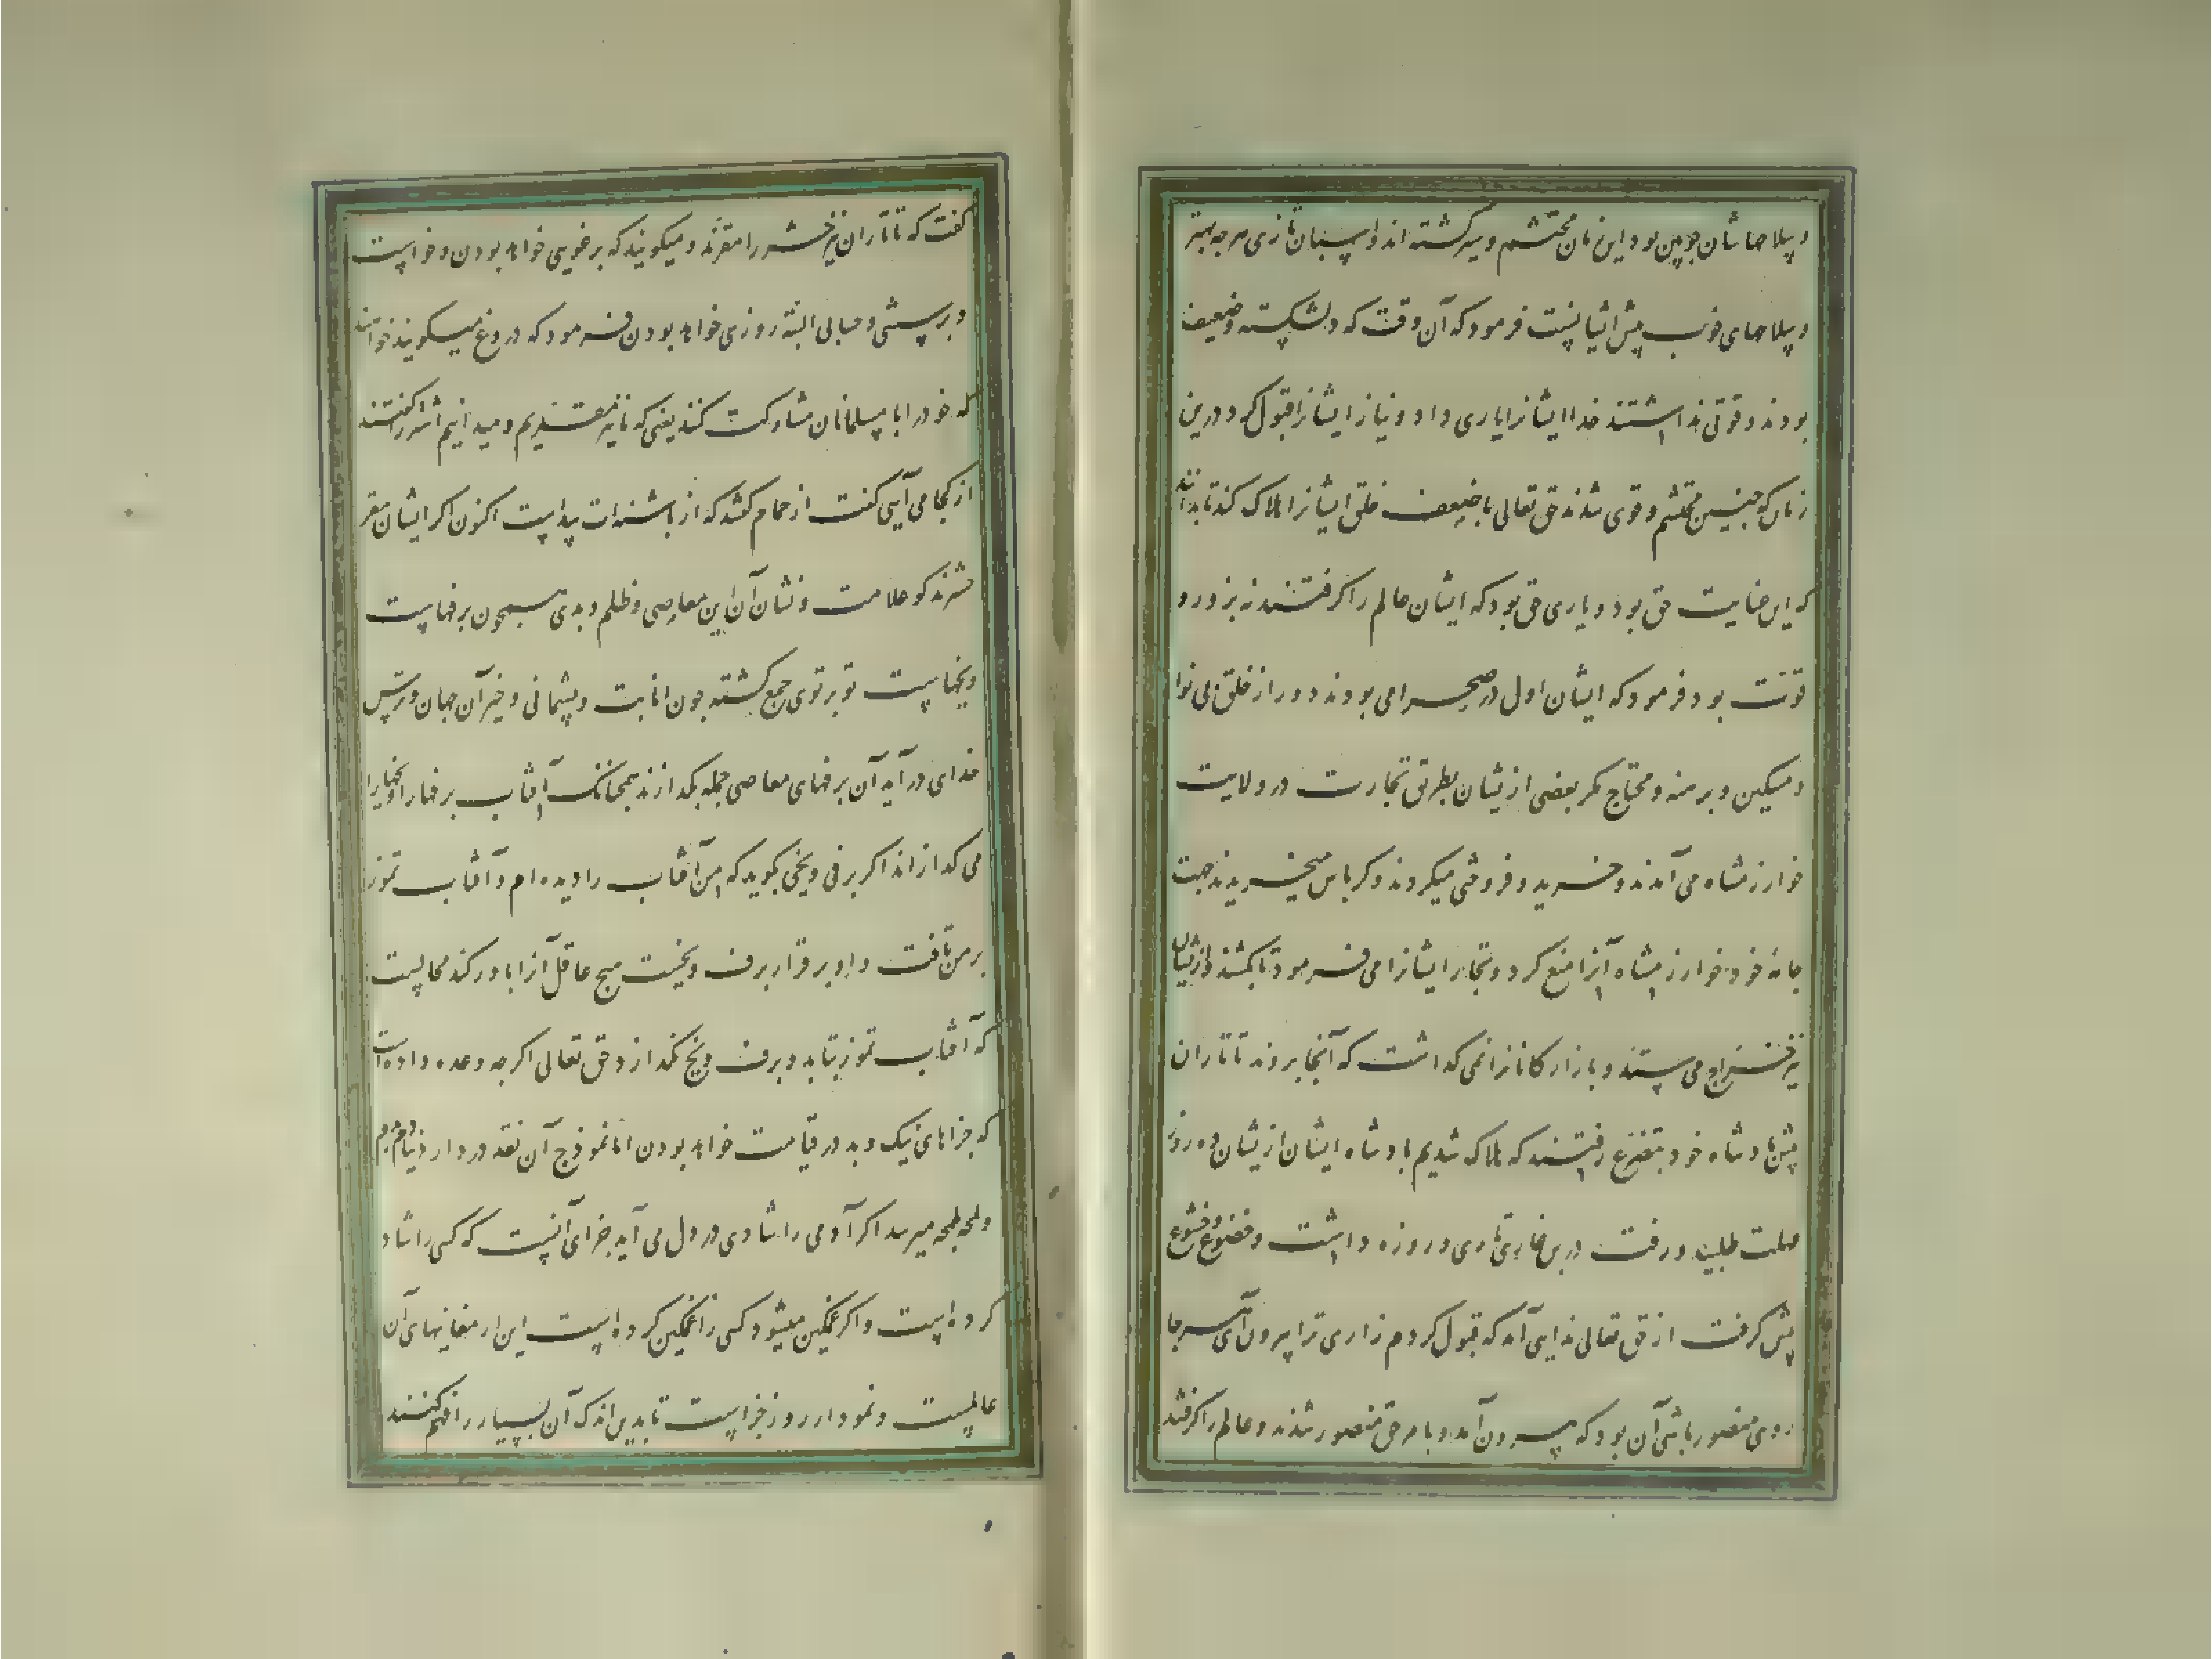 و سلاحهاشان چوبین بود این زمان محتشم و سیر گشته اند و اسپان تازی هرچه بهتر
و سلاحهای خوب پیش ایشانست فرمود که آن وقت که دلشکسته و ضعیف
بودند و قوتی نداشتند خدا ایشانرا یاری داد و نیاز ایشانرا قبول کرد درین
زمان که چنین محتشم و قوی شدند حق تعالی با ضعیف خلق ایشانرا هلاک کند تا بدانند
که این عنایت حق بود و یاری حق بود که ایشان عالم را گرفتند نه بزور و
قوّت بود فرمود که ایشان اول در صحرا می بودند دور از خلق بی نوا
و مسکین و برهنه و محتاج مگر بعضی ازیشان بطریق تجارت در ولایت
خوارزمشاه می آمدند و خرید و فروختی میکردند و کرباس میخریدند جهت
جامهٔ خود خوارزمشاه آنرا منع کرد و تجار ایشانرا می فرمود تا بکشند و ازیشان
نیز خراج می ستند و بازارگانانرا نمی گذاشت که آنجا بروند تاتاران
پیش پادشاه خود بتضرع رفتند که هلاک شدیم پادشاه ایشان ازیشان ده روز
مهلت طلبید و رفت در بن غاری و روزه داشت و خضوع و خشوع
پیش گرفت از حق تعالی ندایی آمد که قبول کردم زاری ترا بیرون آی هر جا
روی منصور باشی آن بود که بیرون آمد و بامر حق منصور شدند و عالم را گرفتند
گفت که تاتاران نیز حشر را مقرّند و میگویند که یرغویی خواهد بودن و خواست
و پرستی و حسابی البته روزی خواهد بودن فرمود که دروغ میگویند خواهند
که خود را با مسلمانان مشارک کنند یعنی که ما نیز معتقدیم و میدانیم اشتر را گفتند
از کجا می آیی گفت از حمام گفتند که از پاشنه ات پیداست اکنون اگر ایشان مقر
حشرند کو علامت و نشان آن این معاصی و ظلم و بدی همچون برفهاست
و یخهاست تو بر توی جمع گشته چون انابت و پشیمانی و خبر آن جهان و ترس
خدای در آید آن برفهای معاصی جمله بگدازند همچنانک آفتاب برفها را و یخها را
می گدازاند اگر برفی و یخی بگوید که من آفتاب را دیده ام و آفتاب تموز
بر من تافت و او بر قرار برف و یخست هیچ عاقل آنرا باور نکند محالست
که آفتاب تموز بتابد و برف و یخ نگدازد حق تعالی اگرچه وعده داده است
که جزاهای نیک و بد در قیامت خواهد بودن اما نموذج آن نقد در دار دنیا دم بدم
و لمحه بلمحه میرسد اگر آدمی را شادی در دل می آید جزای آنست که کسی را شاد
کرده است و اگر غمگین میشود کسی را غمگین کرده است این ارمغانیهای آن
عالمست و نمودار روز جزاست تا بدین اندک آن بسیار را فهم کنند